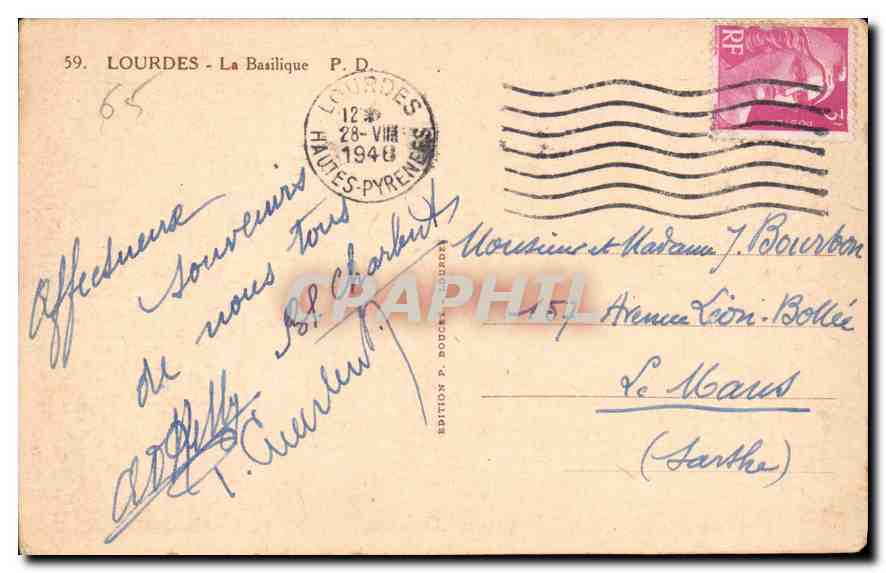 59. LOURDES - La Basilique P. D.
65
LOURDES
12
28-VIII
1948
HAUTES-PYRENEES
RF
3F
Affectueux
souvenirs
de nous tous
EDITION P. DOUCET, LOURDES
Monsieur et Madame J. Bourbon
157 Avenue Léon-Bollée
Le Mans
(Sarthe)
CPAPHIL